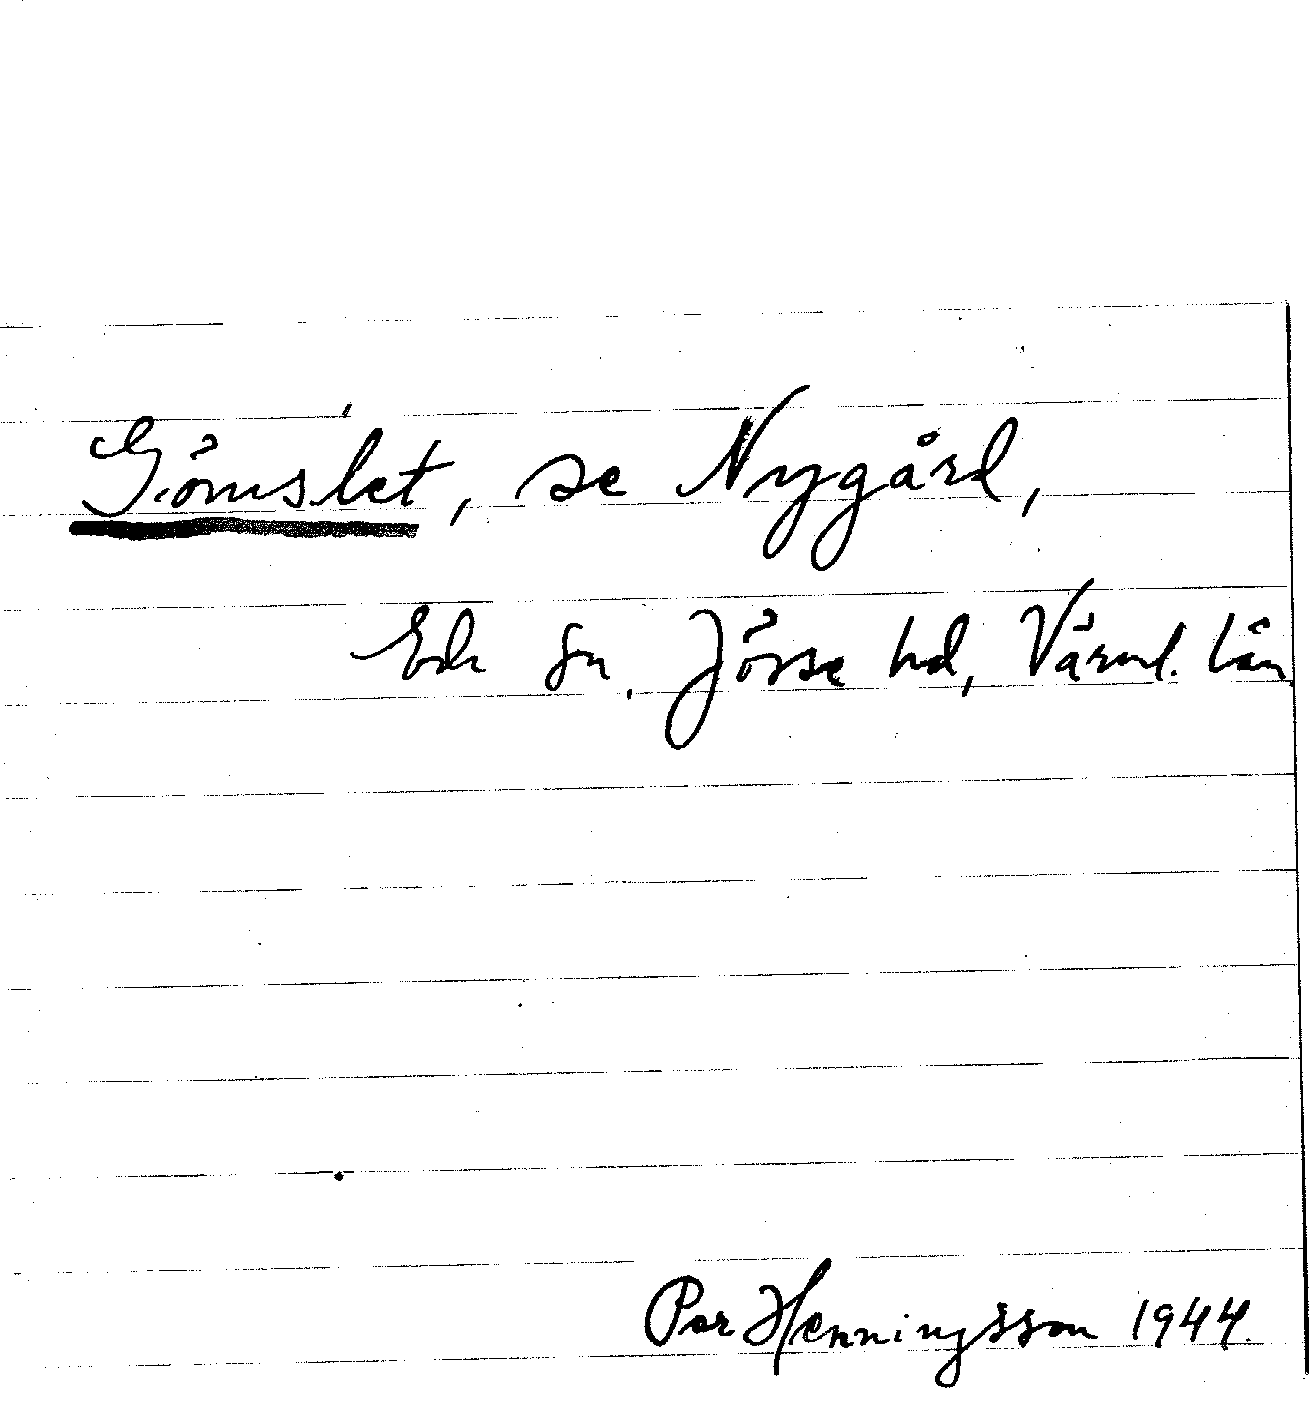 Gömslet, se Nygård,
Eda sn. Jösse hd, Värml. län
Per Henningsson 1944.